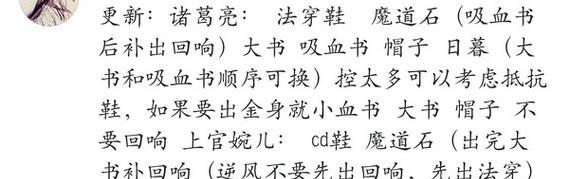 更新：诸葛亮： 法穿鞋 魔道石（吸血书
后补出回响）大书 吸血书 帽子 日暮（大
书和吸血书顺序可换）控太多可以考虑抵抗
鞋，如果要出金身就小血书 大书 帽子 不
要回响 上官婉儿： cd鞋 魔道石（出完大
书补回响（逆风不要先出回响，先出法穿）